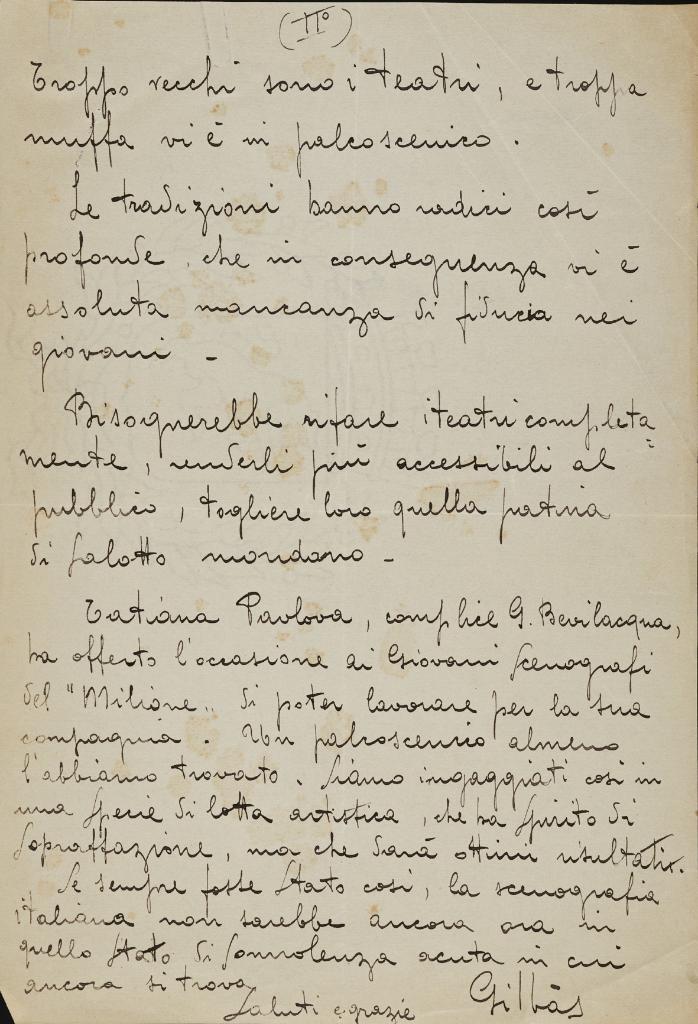 (II°)
Troppo vecchi sono i teatri, e troppa
muffa vi è in palcoscenico.
Le tradizioni hanno radici così
profonde, che in conseguenza vi è
assoluta mancanza di fiducia nei
giovani -
Bisognerebbe rifare i teatri completa=
mente, renderli più accessibili al
pubblico, togliere loro quella patina
di salotto mondano -
Tatiana Pavlova, complice G. Bevilacqua,
ha offerto l'occasione ai Giovani Scenografi
del "Milione" di poter lavorare per la sua
compagnia. Un palcoscenico almeno
l'abbiamo trovato. Siamo ingaggiati così in
una specie di lotta artistica, che ha spirito di
sopraffazione, ma che darà ottimi risultati.
Se sempre fosse stato così, la scenografia
italiana non sarebbe ancora ora in
quello stato di sonnolenza acuta in cui
ancora si trova
Saluti e grazie Gilbàs